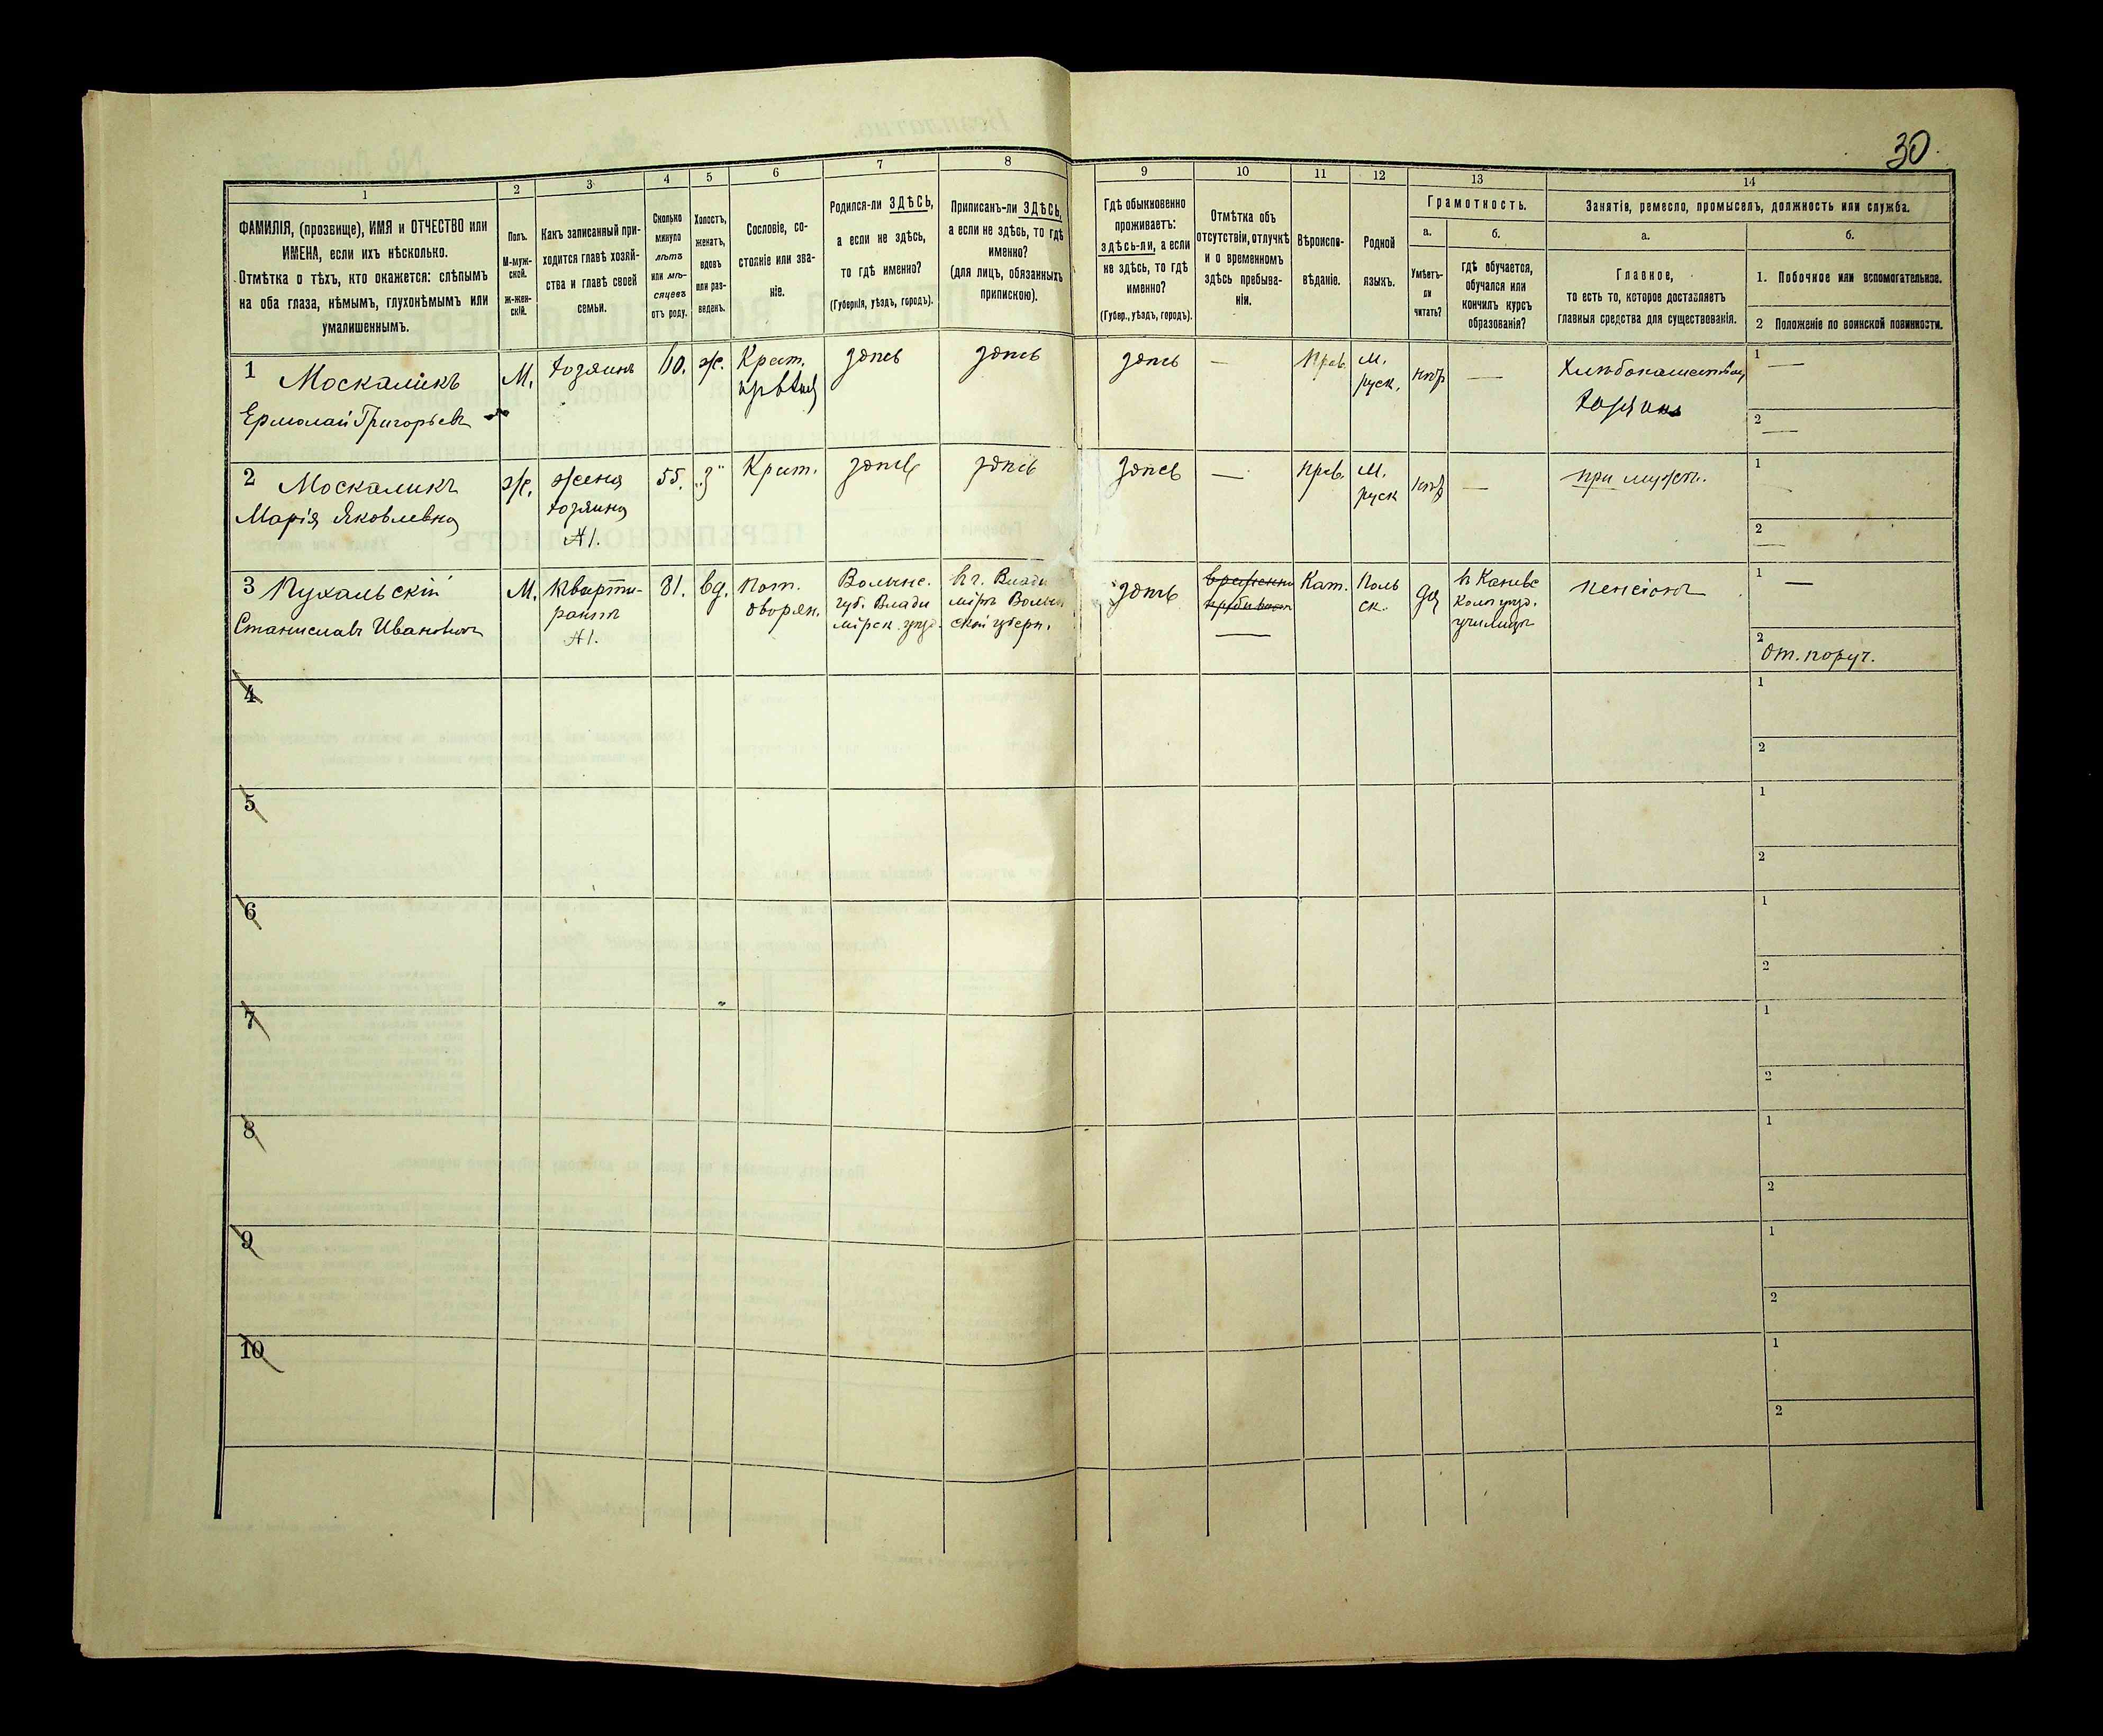 30.
1
2
3
4
5
6
7
8
9
10
11
12
13
14
ФАМИЛІЯ, (прозвище), ИМЯ и ОТЧЕСТВО или
ИМЕНА, если ихъ нѣсколько.
Отмѣтка о тѣхъ, кто окажется: слѣпымъ
на оба глаза, нѣмымъ, глухонѣмымъ или
умалишеннымъ.
Полъ.
М-муж-
ской.
Ж-жен-
скій.
Какъ записанный при-
ходится главѣ хозяй-
ства и главѣ своей
семьи.
Сколько
минуло
лѣтъ
или мѣ-
сяцевъ
отъ роду.
Холостъ,
женатъ,
вдовъ
или раз-
веденъ.
Сословіе, со-
стояніе или зва-
ніе.
Родился-ли ЗДѢСЬ,
а если не здѣсь,
то гдѣ именно?
(Губернія, уѣздъ, городъ).
Приписанъ-ли ЗДѢСЬ,
а если не здѣсь, то гдѣ
именно?
(для лицъ, обязанныхъ
припискою).
Гдѣ обыкновенно
проживаетъ:
здѣсь-ли, а если
не здѣсь, то гдѣ
именно?
(Губер., уѣздъ, городъ).
Отмѣтка объ
отсутствіи, отлучкѣ
и о временномъ
здѣсь пребыва-
ніи.
Вѣроиспо-
вѣданіе.
Родной
языкъ.
Грамотность.
а.
Умѣетъ-
ли
читать?
б.
гдѣ обучается,
обучался или
кончилъ курсъ
образованія?
Занятія, ремесло, промыселъ, должность или служба.
а.
Главное,
то есть то, которое доставляетъ
главныя средства для существованія.
б.
1. Побочное или вспомогательное.
2 Положеніе по воинской повинности.
1 Москаликъ
Ермолай Григорьевъ
М.
хозяинъ
60.
ж.
Крест.
здѣсь
здѣсь
здѣсь
—
Прав.
М.
руск.
нѣтъ
—
Хлѣбопашество
хозяинъ
1
—
2
—
2 Москаликъ
Марія Яковлевна
ж.
жена
хозяина
№1.
55.
„з"
Крест.
здѣсь
здѣсь
здѣсь
—
Прав.
М.
руск
нѣтъ
—
при мужѣ.
1
2
—
3 Пухальскій
Станиславъ Ивановичъ
М.
Кварти-
рантъ
№1.
81.
вд.
Пот.
дворян.
Волынс.
губ. Влади
мірск. уѣзд.
въ г. Влади
мірѣ Волын
ской губерн.
здѣсь
временно
—
Кат.
Поль
ск.
да
въ
уѣзд.
училищѣ
пенсіонъ
1
—
2
От. поруч.
4
1
2
5
1
2
6
1
2
7
1
2
8
1
2
9
1
2
10
1
2